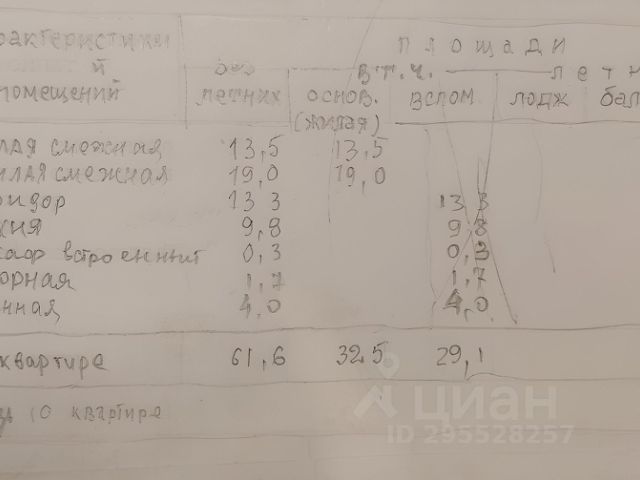 рактеристики площади
й без в т.ч. летн
помещений летних основ. вспом. лодж бал
(жилая)
лая смежная 13,5 13,5
илая смежная 19,0 19,0
идор 13 3 13 3
хня 9,8 9 8
каф встроенный 0,3 0,3
орная 1,7 1,7
нная 4,0 4,0
квартире 61,6 32,5 29,1
по квартире
циан
ID 295528257